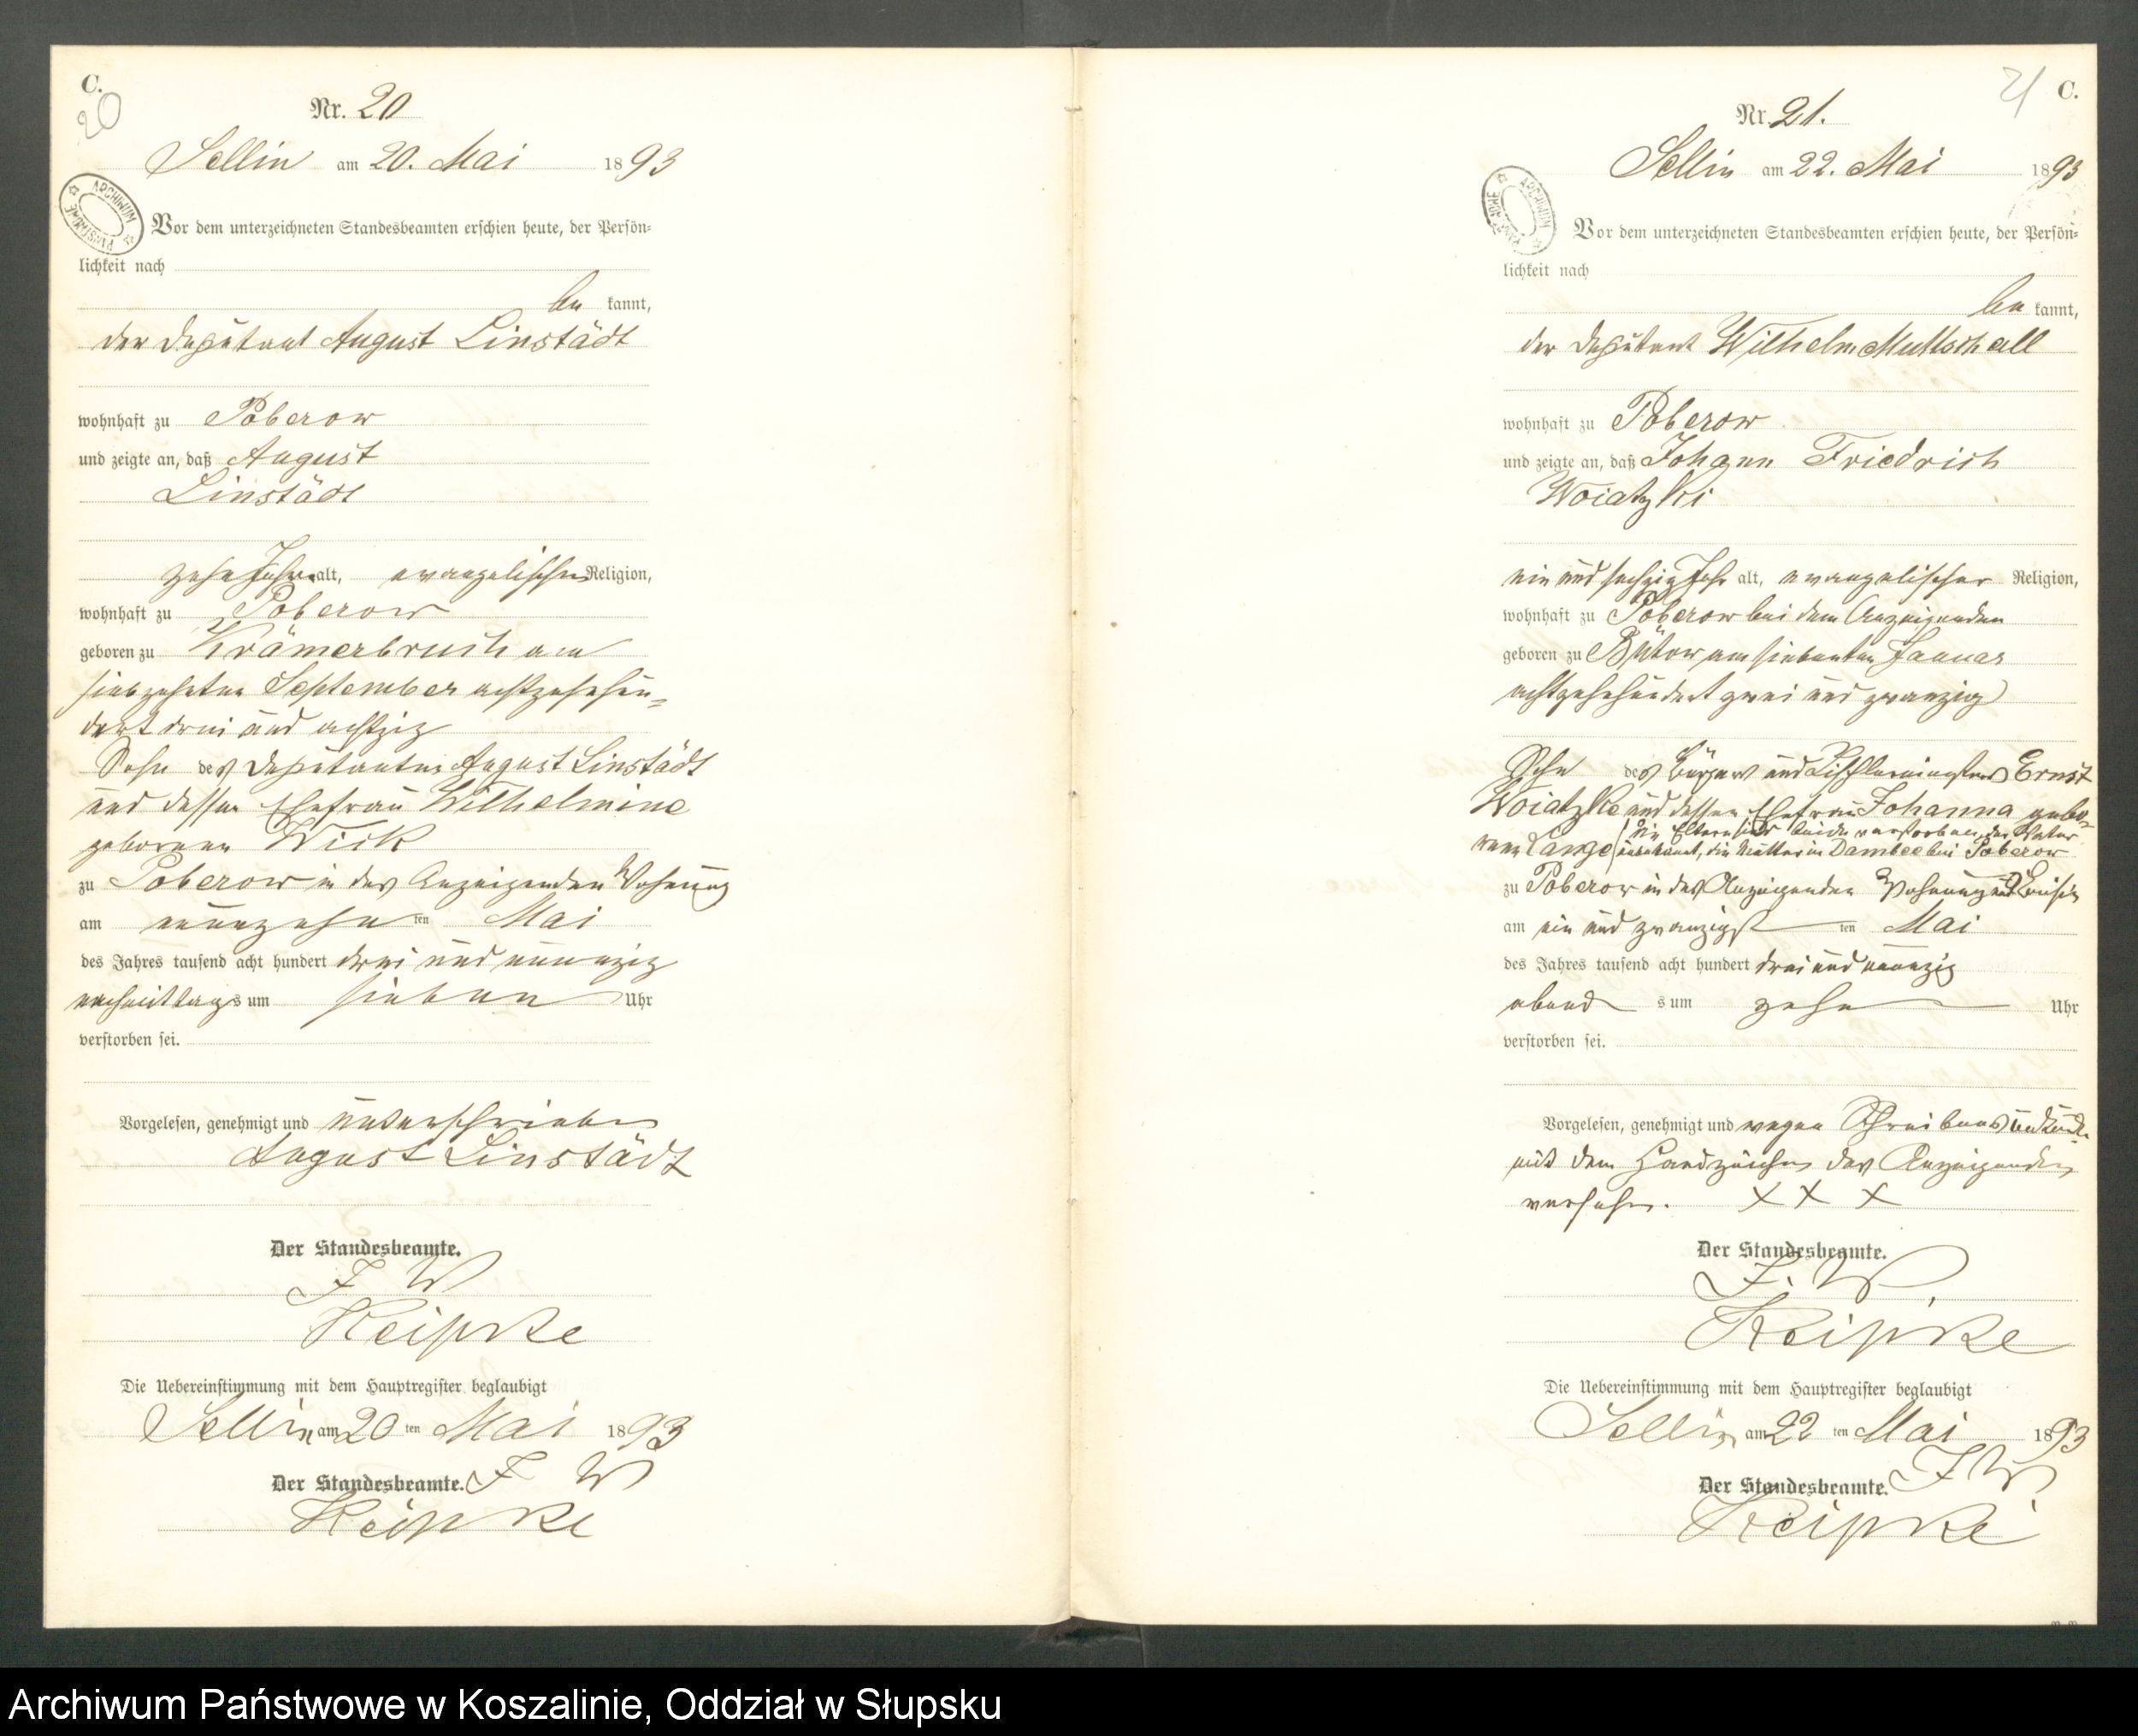 C.
20
Nr. 20
Sellin am 20. Mai 1893
ARCHIWUM PAŃSTWOWE
Vor dem unterzeichneten Standesbeamten erschien heute, der Persön-
lichkeit nach
be kannt,
der Deputant August Linstädt
wohnhaft zu Poberow
und zeigte an, daß August
Linstädt
zehn Jahre alt, evangelischer Religion,
wohnhaft zu Poberow
geboren zu Krämerbruch am
siebzehnten September achtzehnhun-
dert drei und achtzig
Sohn des Deputanten August Linstädt
und dessen Ehefrau Wilhelmine
geborenen Wick
zu Poberow in des Anzeigenden Wohnung
am neunzehn ten Mai
des Jahres tausend acht hundert drei und neunzig
nachmittags um sieben Uhr
verstorben sei.
Vorgelesen, genehmigt und unterschrieben
August Linstädt
Der Standesbeamte.
J W
Reipke
Die Uebereinstimmung mit dem Hauptregister beglaubigt
Sellin am 20 ten Mai 1893
Der Standesbeamte. J W
Reipke
21 C.
Nr. 21.
Sellin am 22. Mai 1893
ARCHIWUM PAŃSTWOWE
Vor dem unterzeichneten Standesbeamten erschien heute, der Persön-
lichkeit nach
be kannt,
der Deputant Wilhelm Muttschall
wohnhaft zu Poberow
und zeigte an, daß Johann Friedrich
Woiatzki
ein und sechzig Jahr alt, evangelischer Religion,
wohnhaft zu Poberow bei dem Anzeigenden
geboren zu Bütow am siebenten Januar
achtzehnhundert zwei und zwanzig
Sohn des Bürgers und Tischlermeisters Ernst
Woiatzke und dessen Ehefrau Johanna gebo-
rene Lange (die Eltern sind beide verstorben, der Vater
unbekannt, die Mutter in Dambee bei Poberow
zu Poberow in des Anzeigenden Wohnung
am ein und zwanzigst ten Mai
des Jahres tausend acht hundert drei und neunzig
abend s um zehn Uhr
verstorben sei.
Vorgelesen, genehmigt und wegen Schreibens unkunde
mit dem Handzeichen des Anzeigenden
versehen. X X X
Der Standesbeamte.
J. W.
Reipke
Die Uebereinstimmung mit dem Hauptregister beglaubigt
Sellin am 22 ten Mai 1893
Der Standesbeamte. J W
Reipke
Archiwum Państwowe w Koszalinie, Oddział w Słupsku